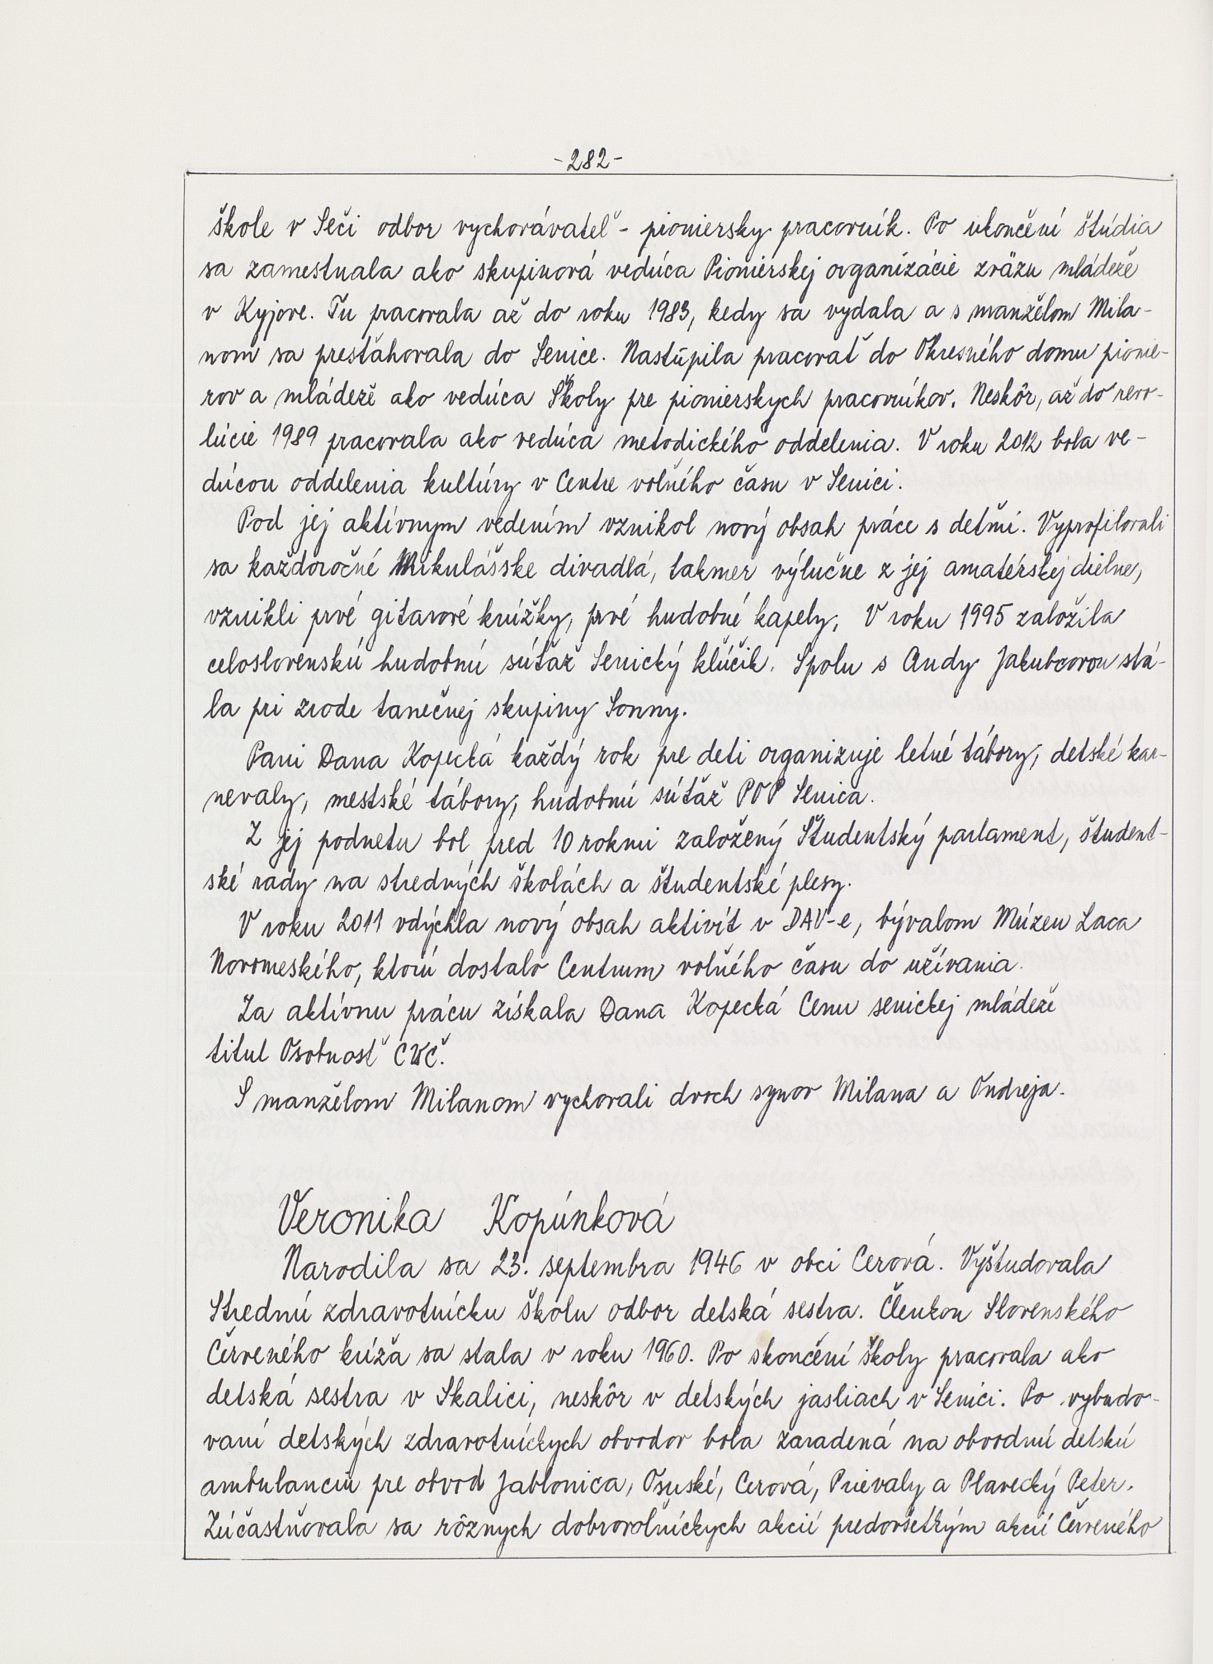 -282-
škole v Seči odbor vychovávateľ - pioniersky pracovník. Po ukončení štúdia
sa zamestnala ako skupinová vedúca Pionierskej organizácie zväzu mládeže
v Kyjove. Tu pracovala až do roku 1983, kedy sa vydala a s manželom Mila-
nom sa presťahovala do Senice. Nastúpila pracovať do Okresného domu pionie-
rov a mládeže ako vedúca Školy pre pionierskych pracovníkov. Neskôr, až do revo-
lúcie 1989 pracovala ako vedúca metodického oddelenia. V roku 2012 bola ve-
dúcou oddelenia kultúry v Centre voľného času v Senici.
Pod jej aktívnym vedením vznikol nový obsah práce s deťmi. Vyprofilovali
sa každoročné Mikulášske divadlá, takmer výlučne z jej amatérskej dielne,
vznikli prvé gitarové knížky, prvé hudobné kapely. V roku 1995 založila
celoslovenskú hudobnú súťaž Senický kľúčik. Spolu s Andy Jakubcovou stá-
la pri zrode tanečnej skupiny Sonny.
Pani Dana Kopecká každý rok pre deti organizuje letné tábory, detské kar-
nevaly, mestské tábory, hudobnú súťaž POP Senica.
Z jej podnetu bol pred 10 rokmi založený Študentský parlament, študent-
ské rady na stredných školách a študentské plesy.
V roku 2011 vdýchla nový obsah aktivít v DAV-e, bývalom Múzeu Laca
Novomeského, ktorú dostalo Centrum voľného času do užívania.
Za aktívnu prácu získala Dana Kopecká Cenu senickej mládeže
titul Osobnosť CVČ.
S manželom Milanom vychovali dvoch synov Milana a Ondreja.
Veronika Kopúnková
Narodila sa 23. septembra 1946 v obci Cerová. Vyštudovala
Strednú zdravotnícku školu odbor detská sestra. Členkou Slovenského
Červeného kríža sa stala v roku 1960. Po skončení školy pracovala ako
detská sestra v Skalici, neskôr v detských jasliach v Senici. Po vybudo-
vaní detských zdravotníckych obvodov bola zaradená na obvodnú detskú
ambulanciu pre obvod Jablonica, Osuské, Cerová, Prievaly a Plavecký Peter.
Zúčastňovala sa rôznych dobrovoľníckych akcií predovšetkým akcií Červeného